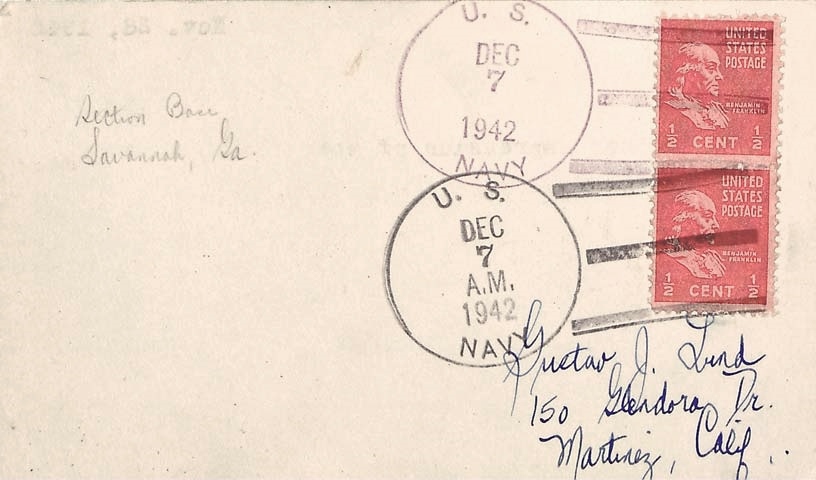 Section Base
Savannah, Ga.
U. S.
DEC
7
1942
NAVY
U. S.
DEC
7
A.M.
1942
NAVY
UNITED
STATES
POSTAGE
BENJAMIN
FRANKLIN
½ CENT ½
UNITED
STATES
POSTAGE
BENJAMIN
FRANKLIN
½ CENT ½
Gustav J. Lund
150 Glendora Dr.
Martinez, Calif.